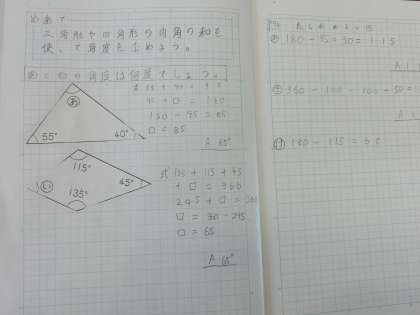 めあて
三角形や四角形の内角の和を
使って角度を求めよう。
あといの角度は何度でしょう。
式 55 + 40 = 95
95 + □ = 180
180 - 95 = 85
□ = 85
A 85°
あ
55°
40°
115°
45°
135°
い
式 135 + 115 + 45
+ □ = 360
295 + □ = 360
□ = 360 - 295
□ = 65
A 65°
360 - 100 -
180 - 115 = 65